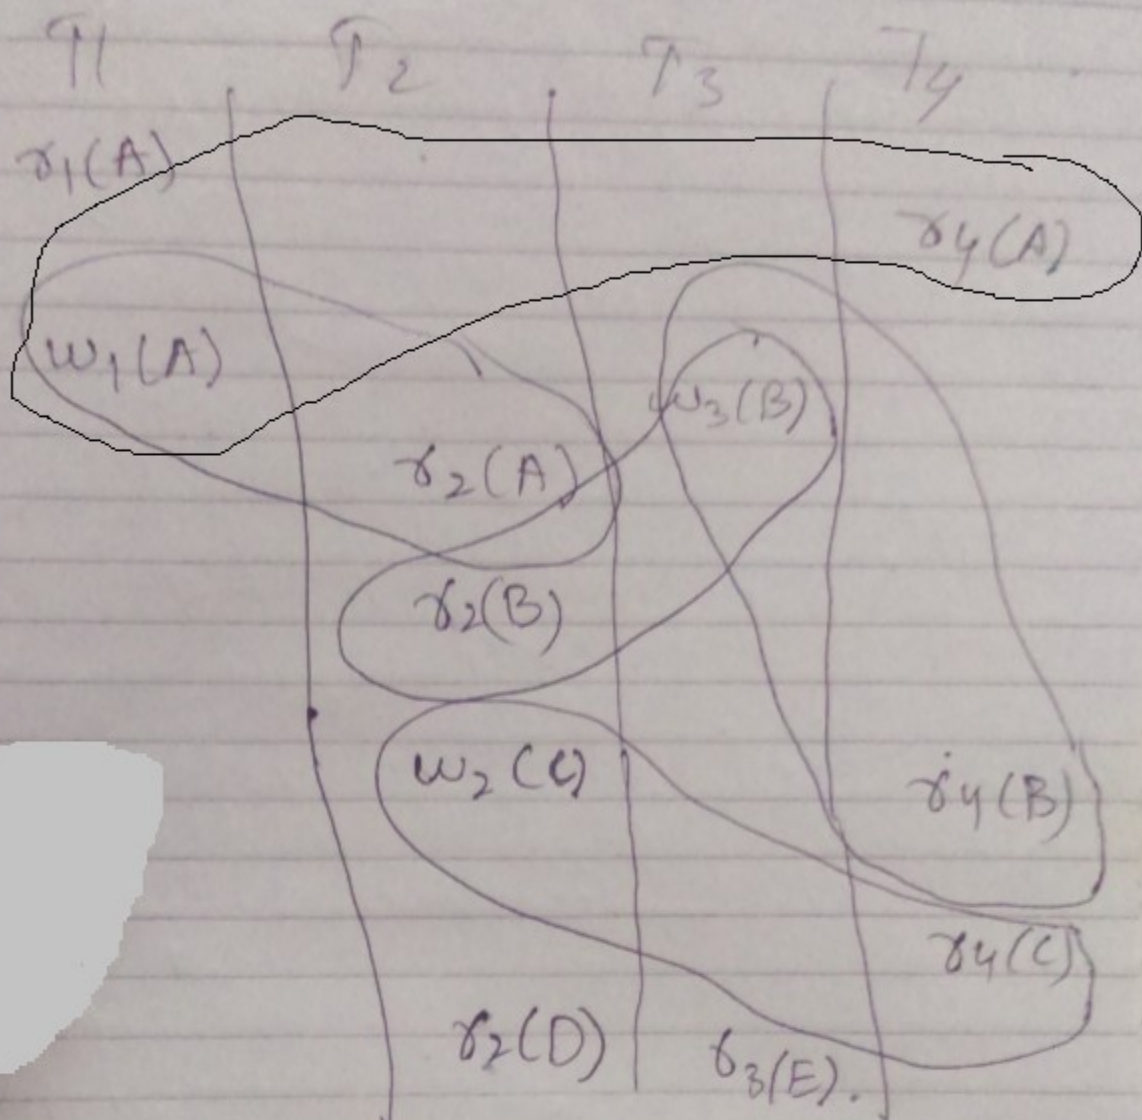 T1 T2 T3 T4
r1(A)
r4(A)
w1(A)
w3(B)
r2(A)
r2(B)
w2(C)
r4(B)
r4(C)
r2(D)
r3(E).